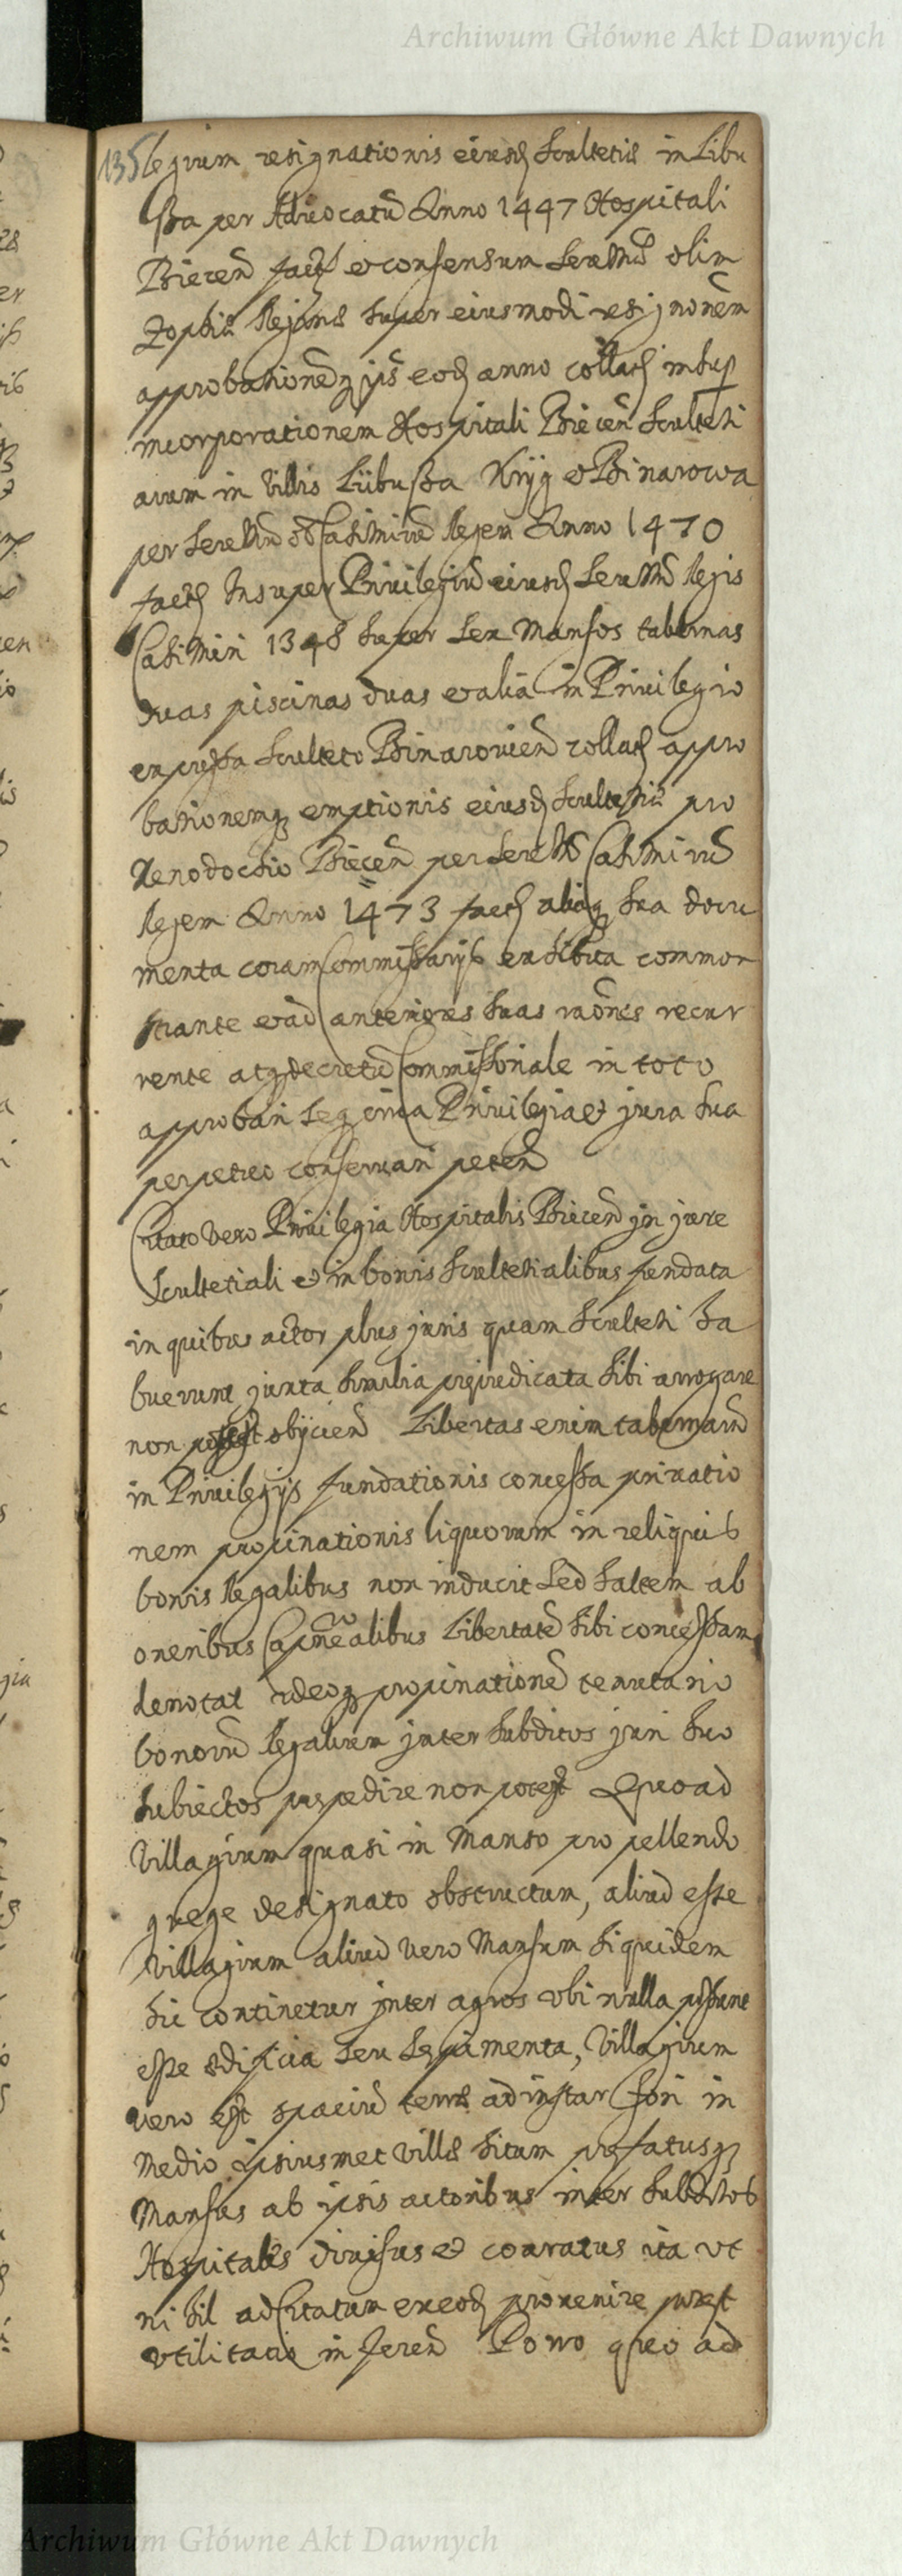 Archiwum Główne Akt Dawnych
135 legium resignationis eiusd Scultetiæ in Libu
ssa per Advocatū Anno 1447 Hospitali
Biecen̄ fact et consensum Serēmæ olim
Zophiæ Reginæ super eiusmodi resignōnem
approbationēq ijs eod anno collat insup
incorporationem Hospitali Biecen̄ Sculteti
arum in Villis Libussa Kryg et Binarowa
per Serēm̄ Casimirū Regem Anno 1470
fact Insuper Privilegiū eiusd Serēm̄ Regis
Casimiri 1348 super Sex Mansos tabernas
duas piscinas duas et alia in Privilegio
expressa Sculteto Binarovien̄ collat appro
bationemq emptionis eiusd Scultetiæ pro
Xenodochio Biecen̄ per Serēm̄ Casimirū
Regem Anno 1473 fact aliaq sua docu
menta coram Commissarijs exhibita common
strante et ad anteriores suas rāōnes recur
rente atq decretū Commissionale in toto
approbari seq circa Privilegia et jura sua
perpetuo conservari peten̄
Citato vero Privilegia Hospitalis Biecen̄ in jure
Scultetiali et in bonis Scultetialibus fundata
in quibus actor plus juris quam Sculteti ha
buerunt juxta similia præjudicata sibi arrogare
non potest objicien̄ Libertas enim tabernarū
in Privilegijs fundationis concessa privatio
nem propinationis liquorum in reliquis
bonis Regalibus non inducit sed saltem ab
oneribus libertatē sibi concessam
denotat ideoq propinationē tenutario
bonorū Regalium inter subditos juri suo
subiectos præpedire non potest Quo ad
Villagium quasi in Manso pro pellendo
grege designato obstructum, aliud esse
Villagium aliud vero Mansum siquidem
hic continetur inter agros ubi nulla possunt
esse ædificia seu sepimenta, Villagium
vero est spatiū terræ ad instar fori in
Medio ipsiusmet Villæ situm præfatusq
Mansus ab ipsis actoribus inter subditos
Hospitales divisus et coaratus ita ut
nihil ad Citatum ex eod provenire potest
utilitatis inferen̄ Porro quo ad
Archiwum Główne Akt Dawnych